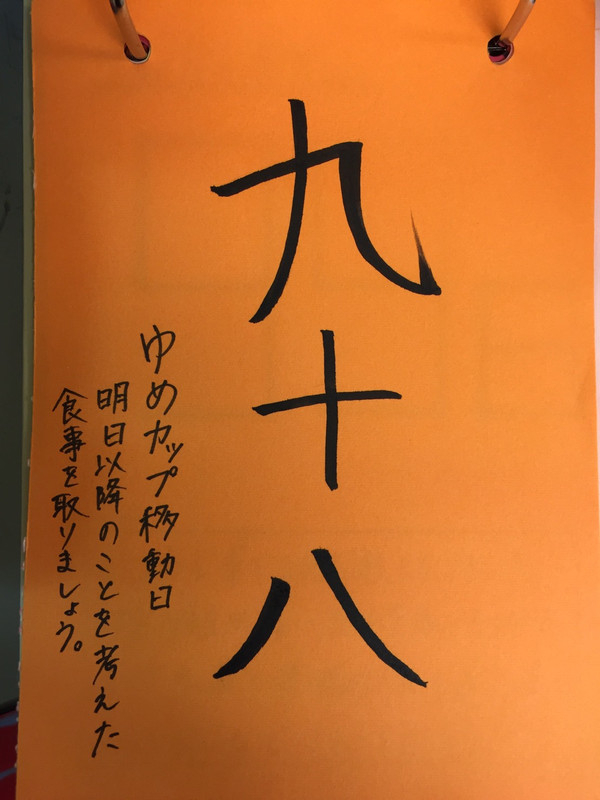 九十八
ゆめカップ移動日
明日以降のことを考えた
食事を取りましょう。